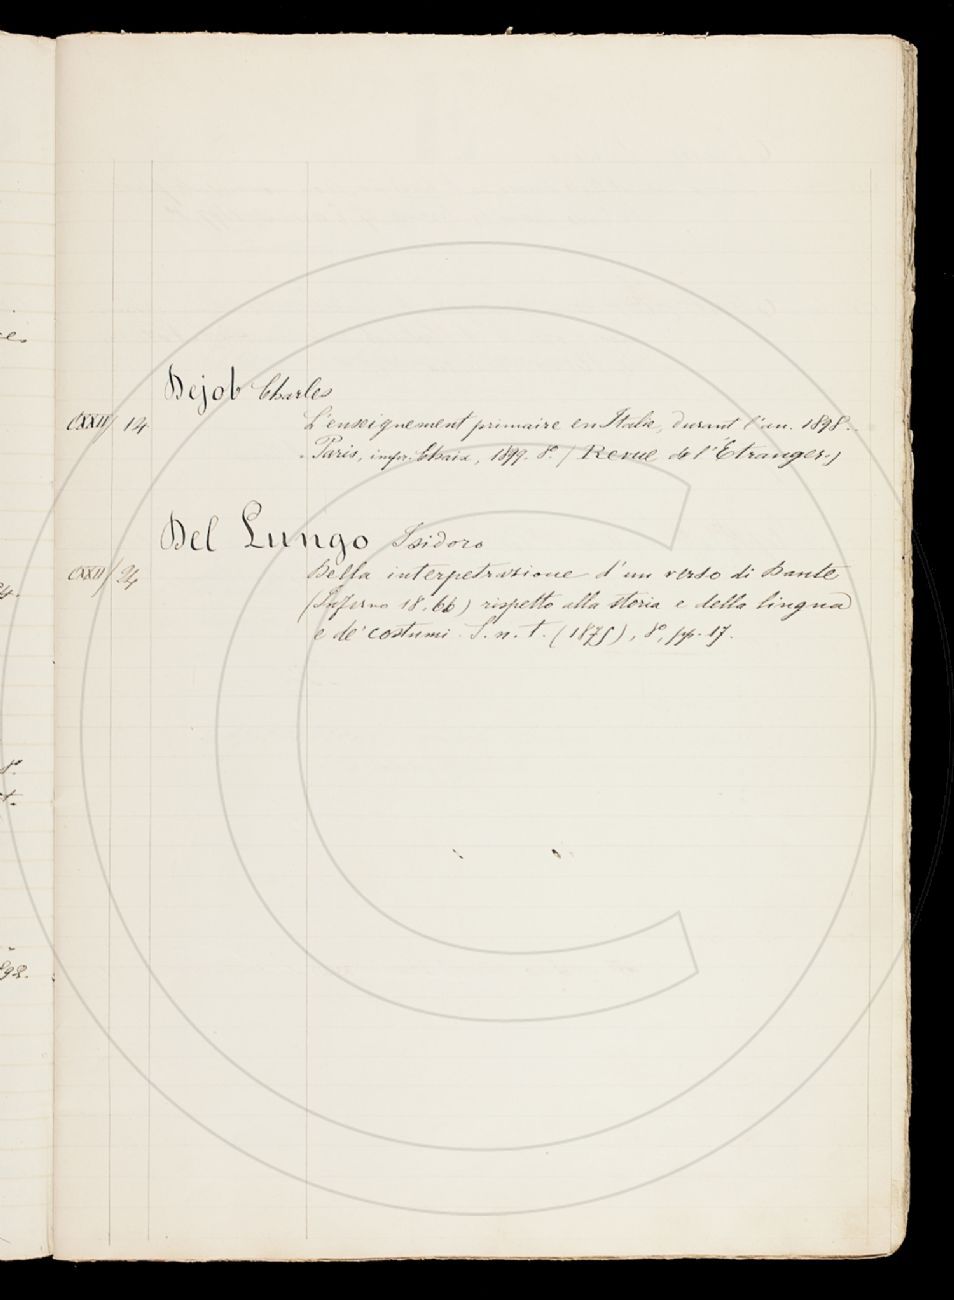 Dejob Charles
CXXII / 14 L'enseignement primaire en Italie, durant l'an. 1898.
Paris, impr. Chaix, 1899. 8.° (Revue de l'Étranger.)
Del Lungo Isidoro
CXXII / 24 Della interpetrazione d'un verso di Dante
(Inferno 18, 66) rispetto alla storia e della lingua
e de' costumi. S. n. t. (1875), 8°, pp. 17.